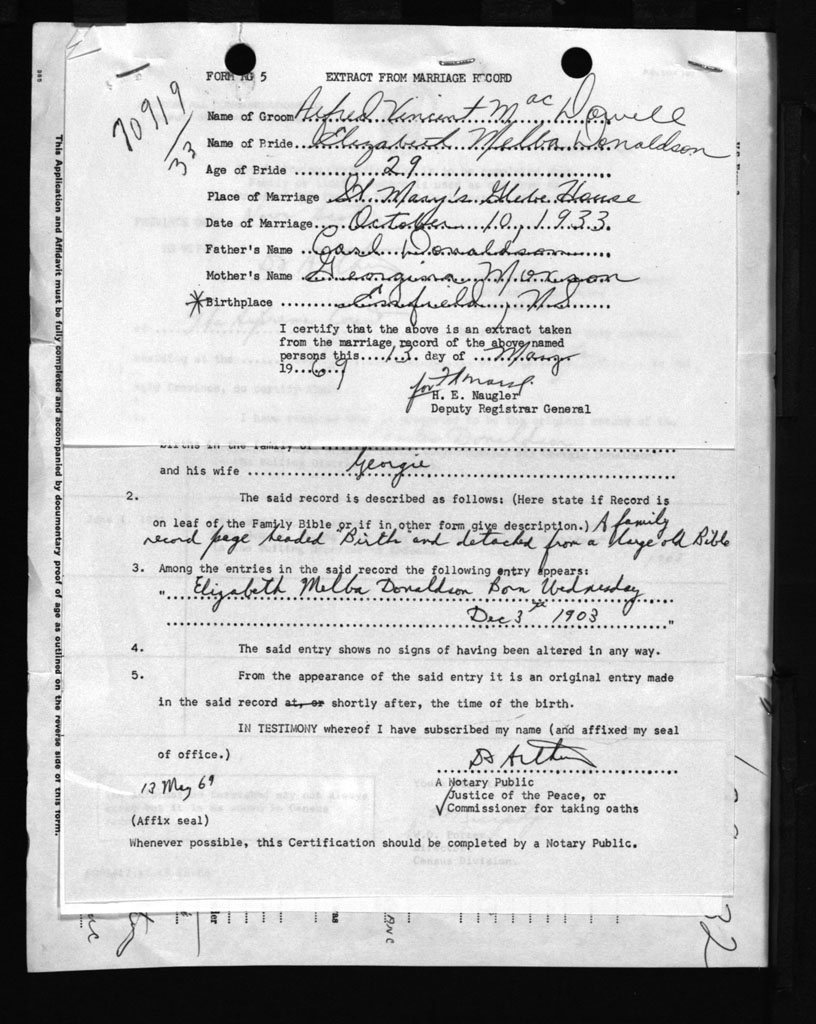 FORM NG 5 EXTRACT FROM MARRIAGE RECORD
70919
33
Name of Groom Alfred Vincent MacDowell
Name of Bride Elizabeth Melba Donaldson
Age of Bride 29
Place of Marriage St Mary's Glebe House
Date of Marriage October 10, 1933
Father's Name Carl Donaldson
Mother's Name Georgina Moxson
*Birthplace Enfield, NS
I certify that the above is an extract taken
from the marriage record of the above named
persons this 13 day of May
1969
for
H. E. Naugler
Deputy Registrar General
births in the family of
and his wife Georgie
2. The said record is described as follows: (Here state if Record is
on leaf of the Family Bible or if in other form give description.) A family
record page headed "Birth and detached from a large old Bible
3. Among the entries in the said record the following entry appears:
" Elizabeth Melba Donaldson Born Wednesday
Dec 3 1903 "
4. The said entry shows no signs of having been altered in any way.
5. From the appearance of the said entry it is an original entry made
in the said record at, or shortly after, the time of the birth.
IN TESTIMONY whereof I have subscribed my name (and affixed my seal
of office.)
A Notary Public
Justice of the Peace, or
Commissioner for taking oaths
13 May 69
(Affix seal)
Whenever possible, this Certification should be completed by a Notary Public.
This Application and Affidavit must be fully completed and accompanied by documentary proof of age as outlined on the reverse side of this form.
32